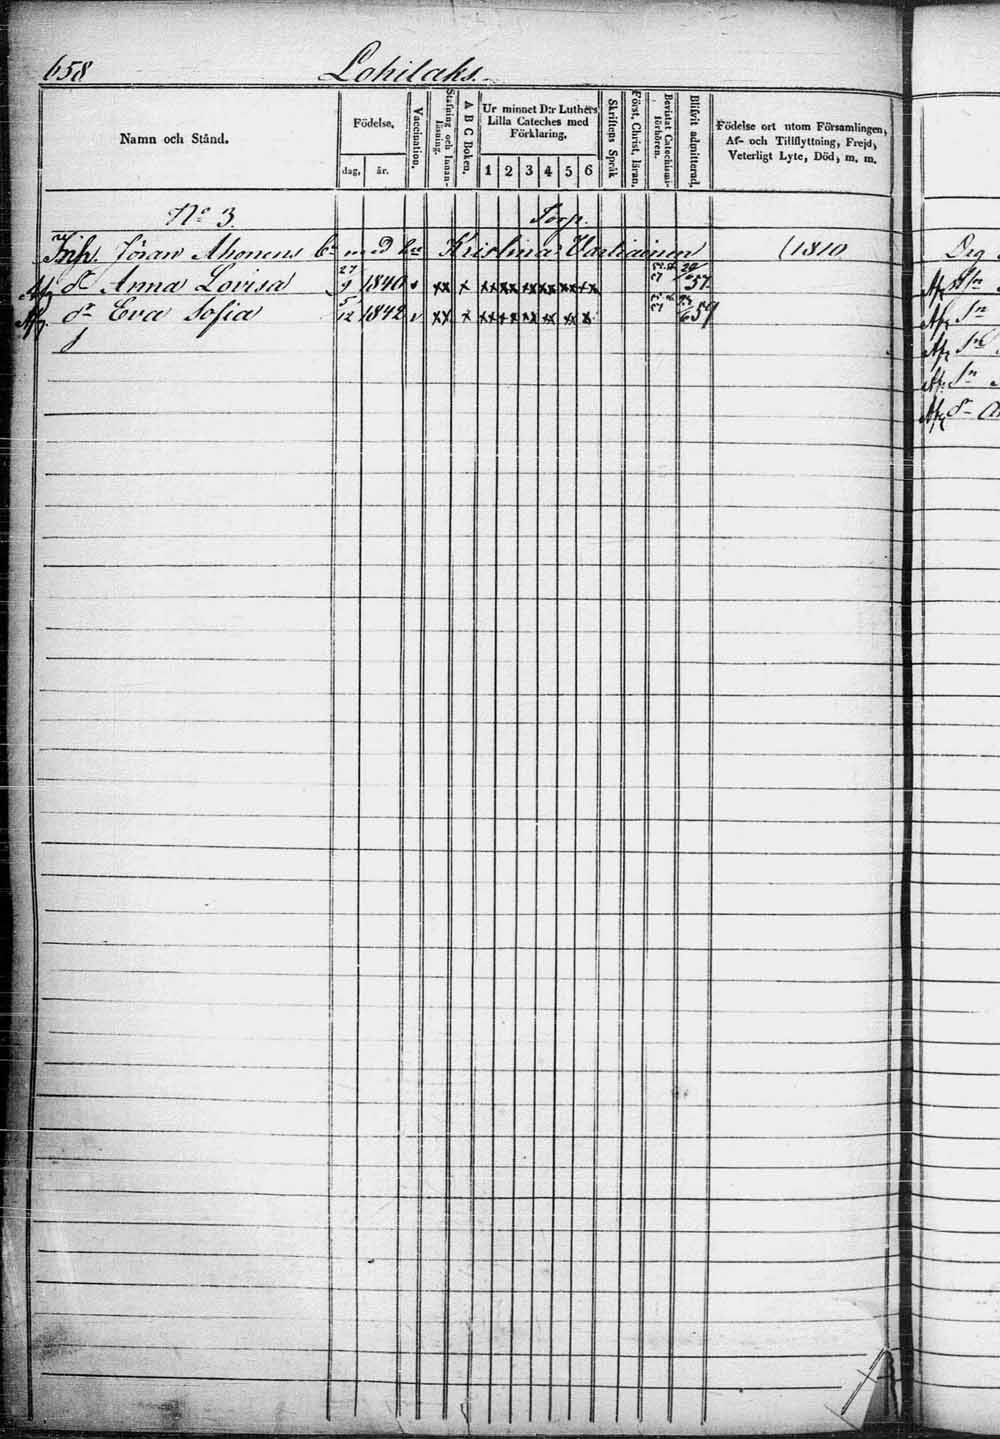 658 Lohilaks.
Namn och Stånd.
Födelse.
dag, år.
Vaccination.
Stafning och Innanläsning.
A B C Boken.
Ur minnet D:r Luthers Lilla Cateches med Förklaring.
1 2 3 4 5 6
Skriftens Språk
Först. Christ. läran.
Bevistat Catechismiförhören.
Blifvit admitterad.
Födelse ort utom Församlingen, Af- och Tillflyttning, Frejd, Veterligt Lyte, Död, m. m.
No 3. Torp.
Inh. Jöran Ahonens med Kristina Vartiainen (1810
dr Anna Lovisa 27/9 1840 57
dr Eva Sofia 5/12 1842 59